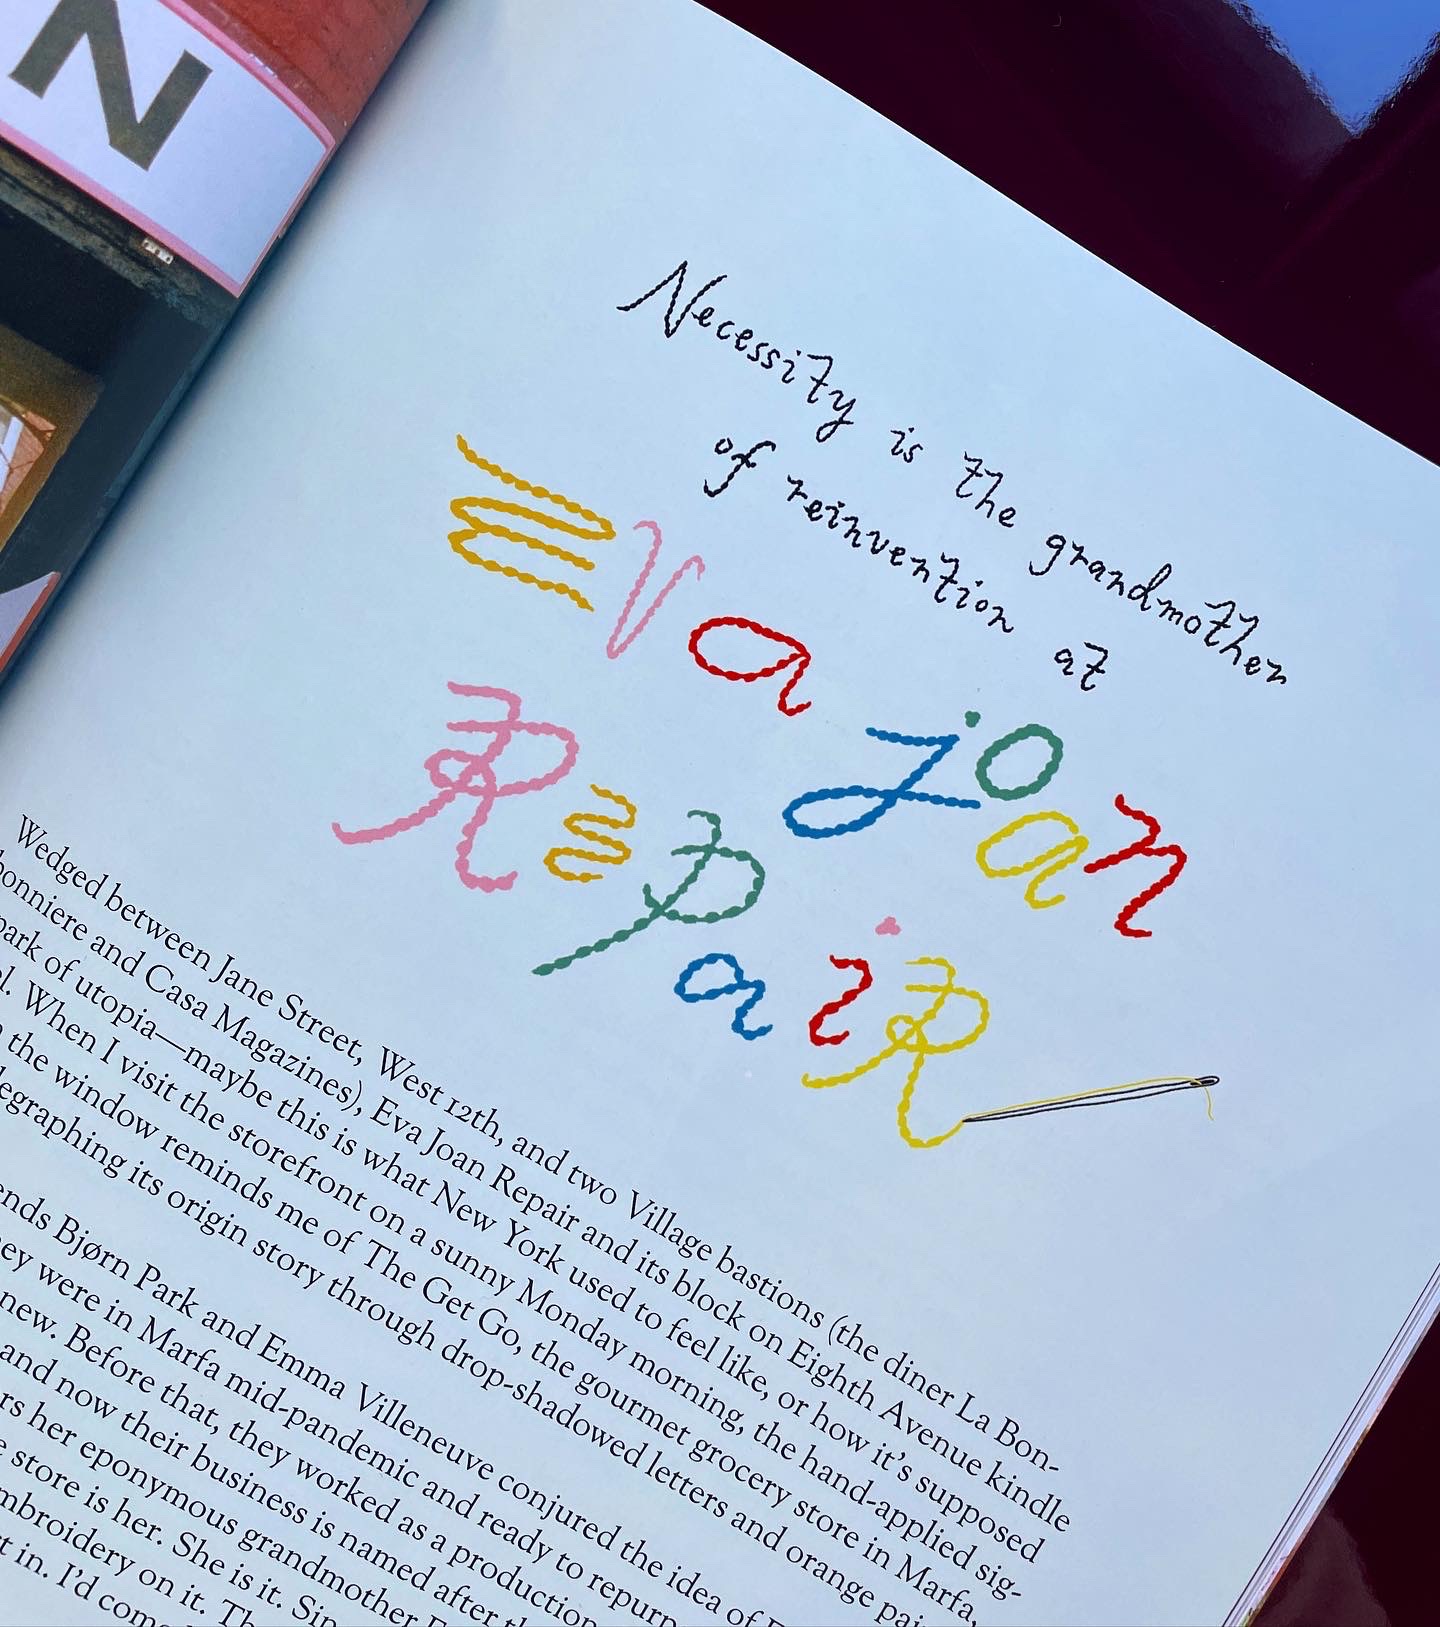 N
Necessity is the grandmother
of reinvention at
Eva Joan
Repair
Wedged between Jane Street, West 12th, and two Village bastions (the diner La Bon-
bonniere and Casa Magazines), Eva Joan Repair and its block on Eighth Avenue kindle
park of utopia—maybe this is what New York used to feel like, or how it's supposed
l. When I visit the storefront on a sunny Monday morning, the hand-applied sig-
the window reminds me of The Get Go, the gourmet grocery store in Marfa,
legraphing its origin story through drop-shadowed letters and orange pai
ends Bjørn Park and Emma Villeneuve conjured the idea of
ey were in Marfa mid-pandemic and ready to repurp
new. Before that, they worked as a production
and now their business is named after th
rs her eponymous grandmother
store is her. She is it. Sin
mbroidery on it. Th
t in. I'd com